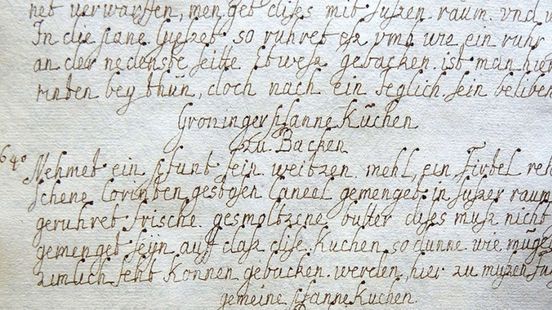 net verwarffen, menget dises mit suszen raum vnd
In die pane gieszet so ruhret esz vmb wie ein ruhr
an der nedenste seitte etwesz gebacken ist man hier
rinten bey thun, doch nach ein jeglich sein beliben
Groninger pfanne Küchen
zu Backen
640 Nehmet ein pfunt fein weitzen mehl, ein Firtel
schene Corinten gestosen Caneel gemenget in suszer raum
geruhret frische gesmoltzene butter dises musz nicht
gemenget seyn auff dasz dise kuchen so dunne wie mug
zimlich fekt konnen gebacken werden, hier zu muszen
gemeine pfanne Kuchen